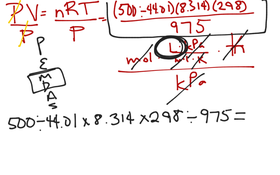 PV/P = nRT/P = (500÷44.01)(8.314)(298)/975
mol · L·kPa/mol·K · K
kPa
P
E
M
D
A
S
500÷44.01×8.314×298÷975=